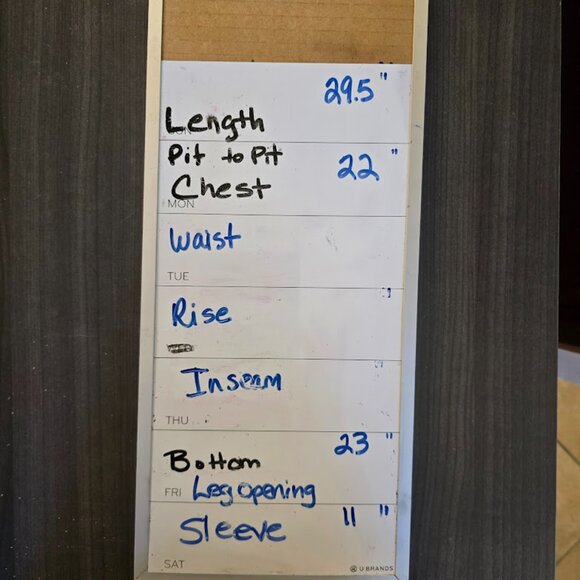 29.5"
Length
Pit to Pit
22"
Chest
MON
Waist
TUE
Rise
"
Inseam
THU
23"
Bottom
FRI Leg opening
Sleeve 11"
SAT U BRANDS